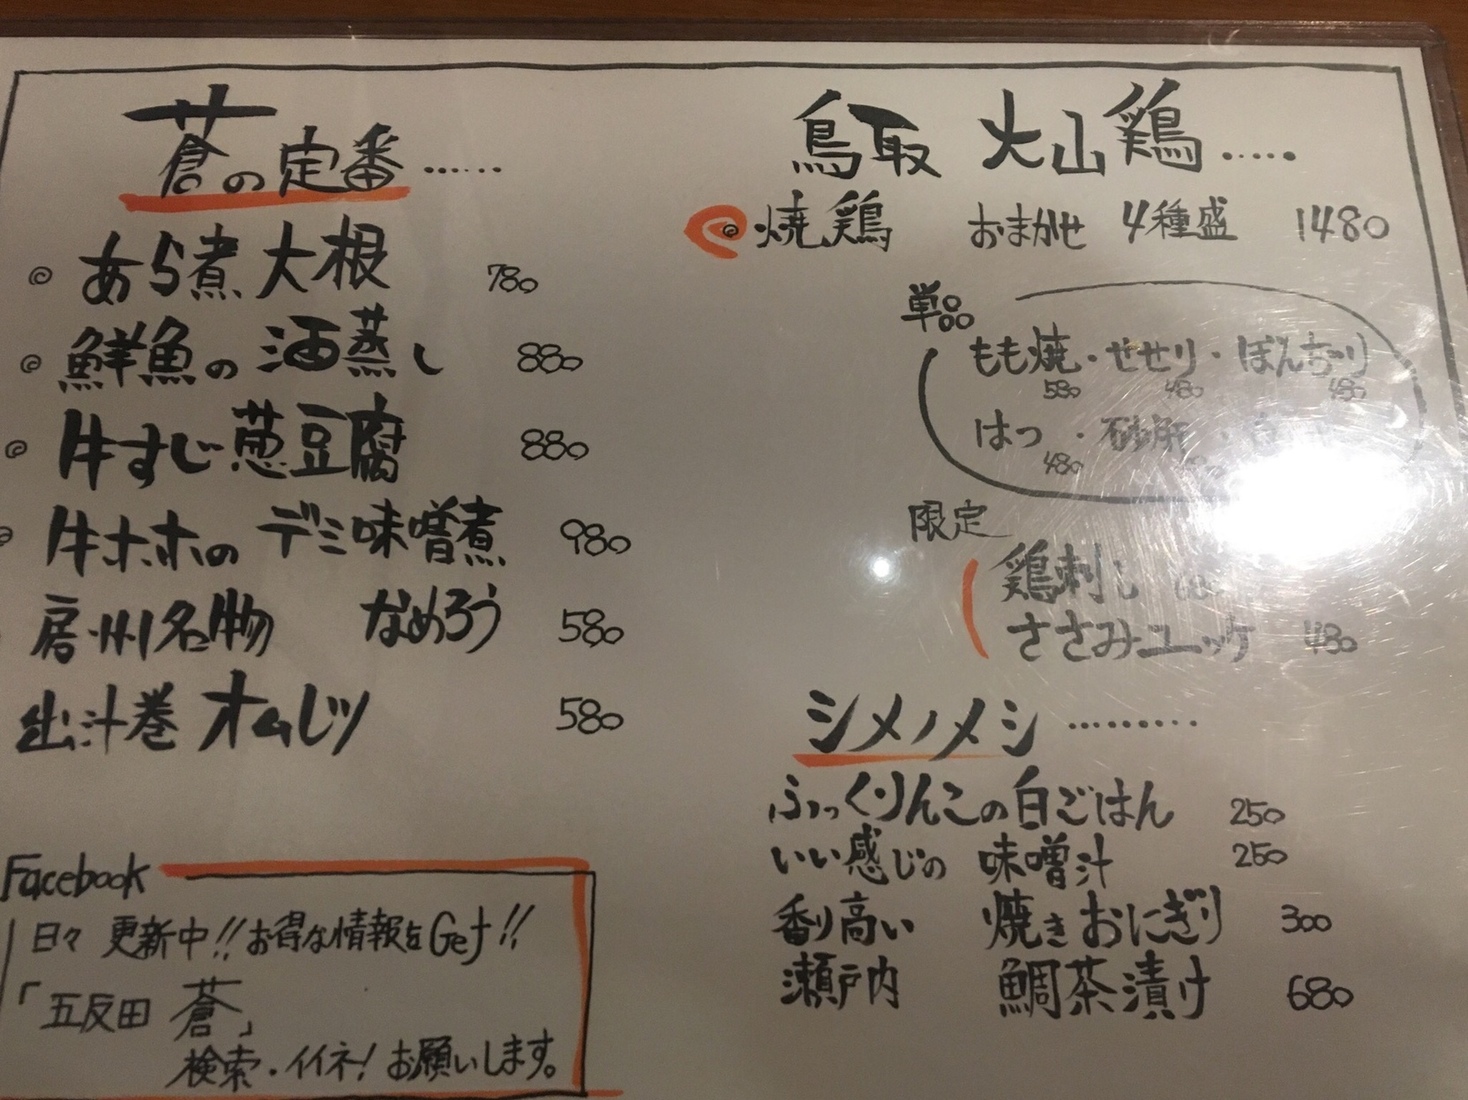 蒼の定番……
あら煮大根 780
鮮魚の酒蒸し 880
牛すじ葱豆腐 880
牛ホホのデミ味噌煮 980
房州名物 なめろう 580
出汁巻オムレツ 580
Facebook
日々更新中!!お得な情報をGet!!
「五反田 蒼」
検索・イイネ!お願いします。
鳥取 大山鶏……
焼鶏 おまかせ 4種盛 1480
単品
もも焼・せせり・ぼんちり
580 480 480
はつ・砂肝・
480
限定
鶏刺し
ささみユッケ 480
シメノメシ………
ふっくりんこの白ごはん 250
いい感じの 味噌汁 250
香り高い 焼きおにぎり 300
瀬戸内 鯛茶漬け 680